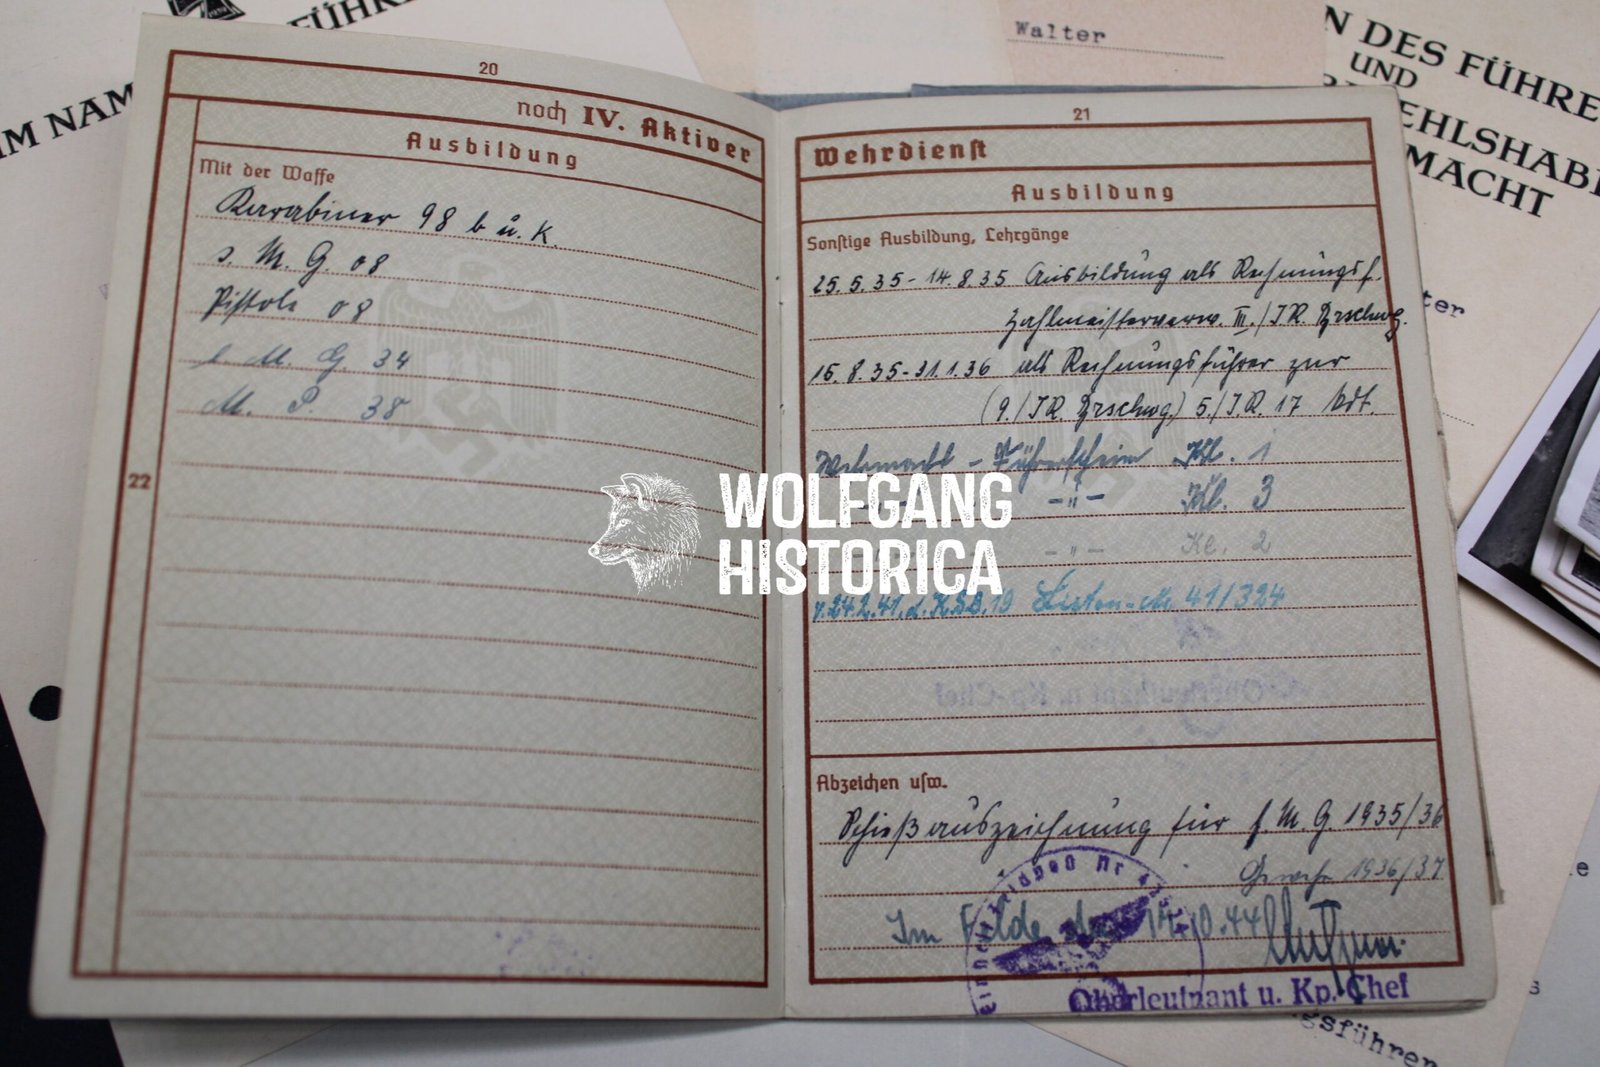 FÜHRE
IM NAM
Walter
N DES FÜHRE
UND
EHLSHABE
MACHT
ter
20
noch IV. Aktiver
Ausbildung
Mit der Waffe
Karabiner 98 b u. k.
s. M. G. 08
Pistole 08
l. M. G. 34
M. P. 38
22
21
Wehrdienst
Ausbildung
Sonstige Ausbildung, Lehrgänge
25.5.35 - 14.8.35 Ausbildung als Rechnungsf.
Zahlmeisterverw. III./I.R. Brschwg.
15.8.35-31.1.36 als Rechnungsführer zur
(9./I.R. Brschwg.) 5./I.R. 17 kdt.
Wehrmacht - Führerschein Kl. 1
-"- Kl. 3
-"- Kl. 2
v. 24.2.41. d. K.S.B. 19 Listen-Nr. 41/324
Oberleutnant u. Kp.-Chef
Abzeichen usw.
Schießauszeichnung für s.M.G. 1935/36
Gewehr 1936/37
Im Felde den 10.44
Nr
Oberleutnant u. Kp. Chef
WOLFGANG
HISTORICA
e
s
gsführer